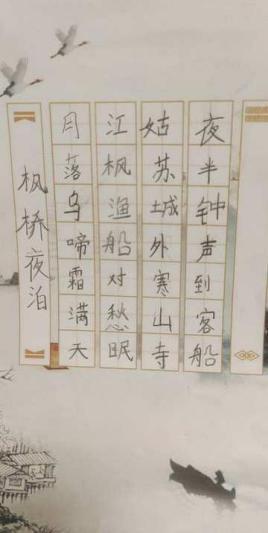 枫桥夜泊
月落乌啼霜满天
江枫渔船对愁眠
姑苏城外寒山寺
夜半钟声到客船